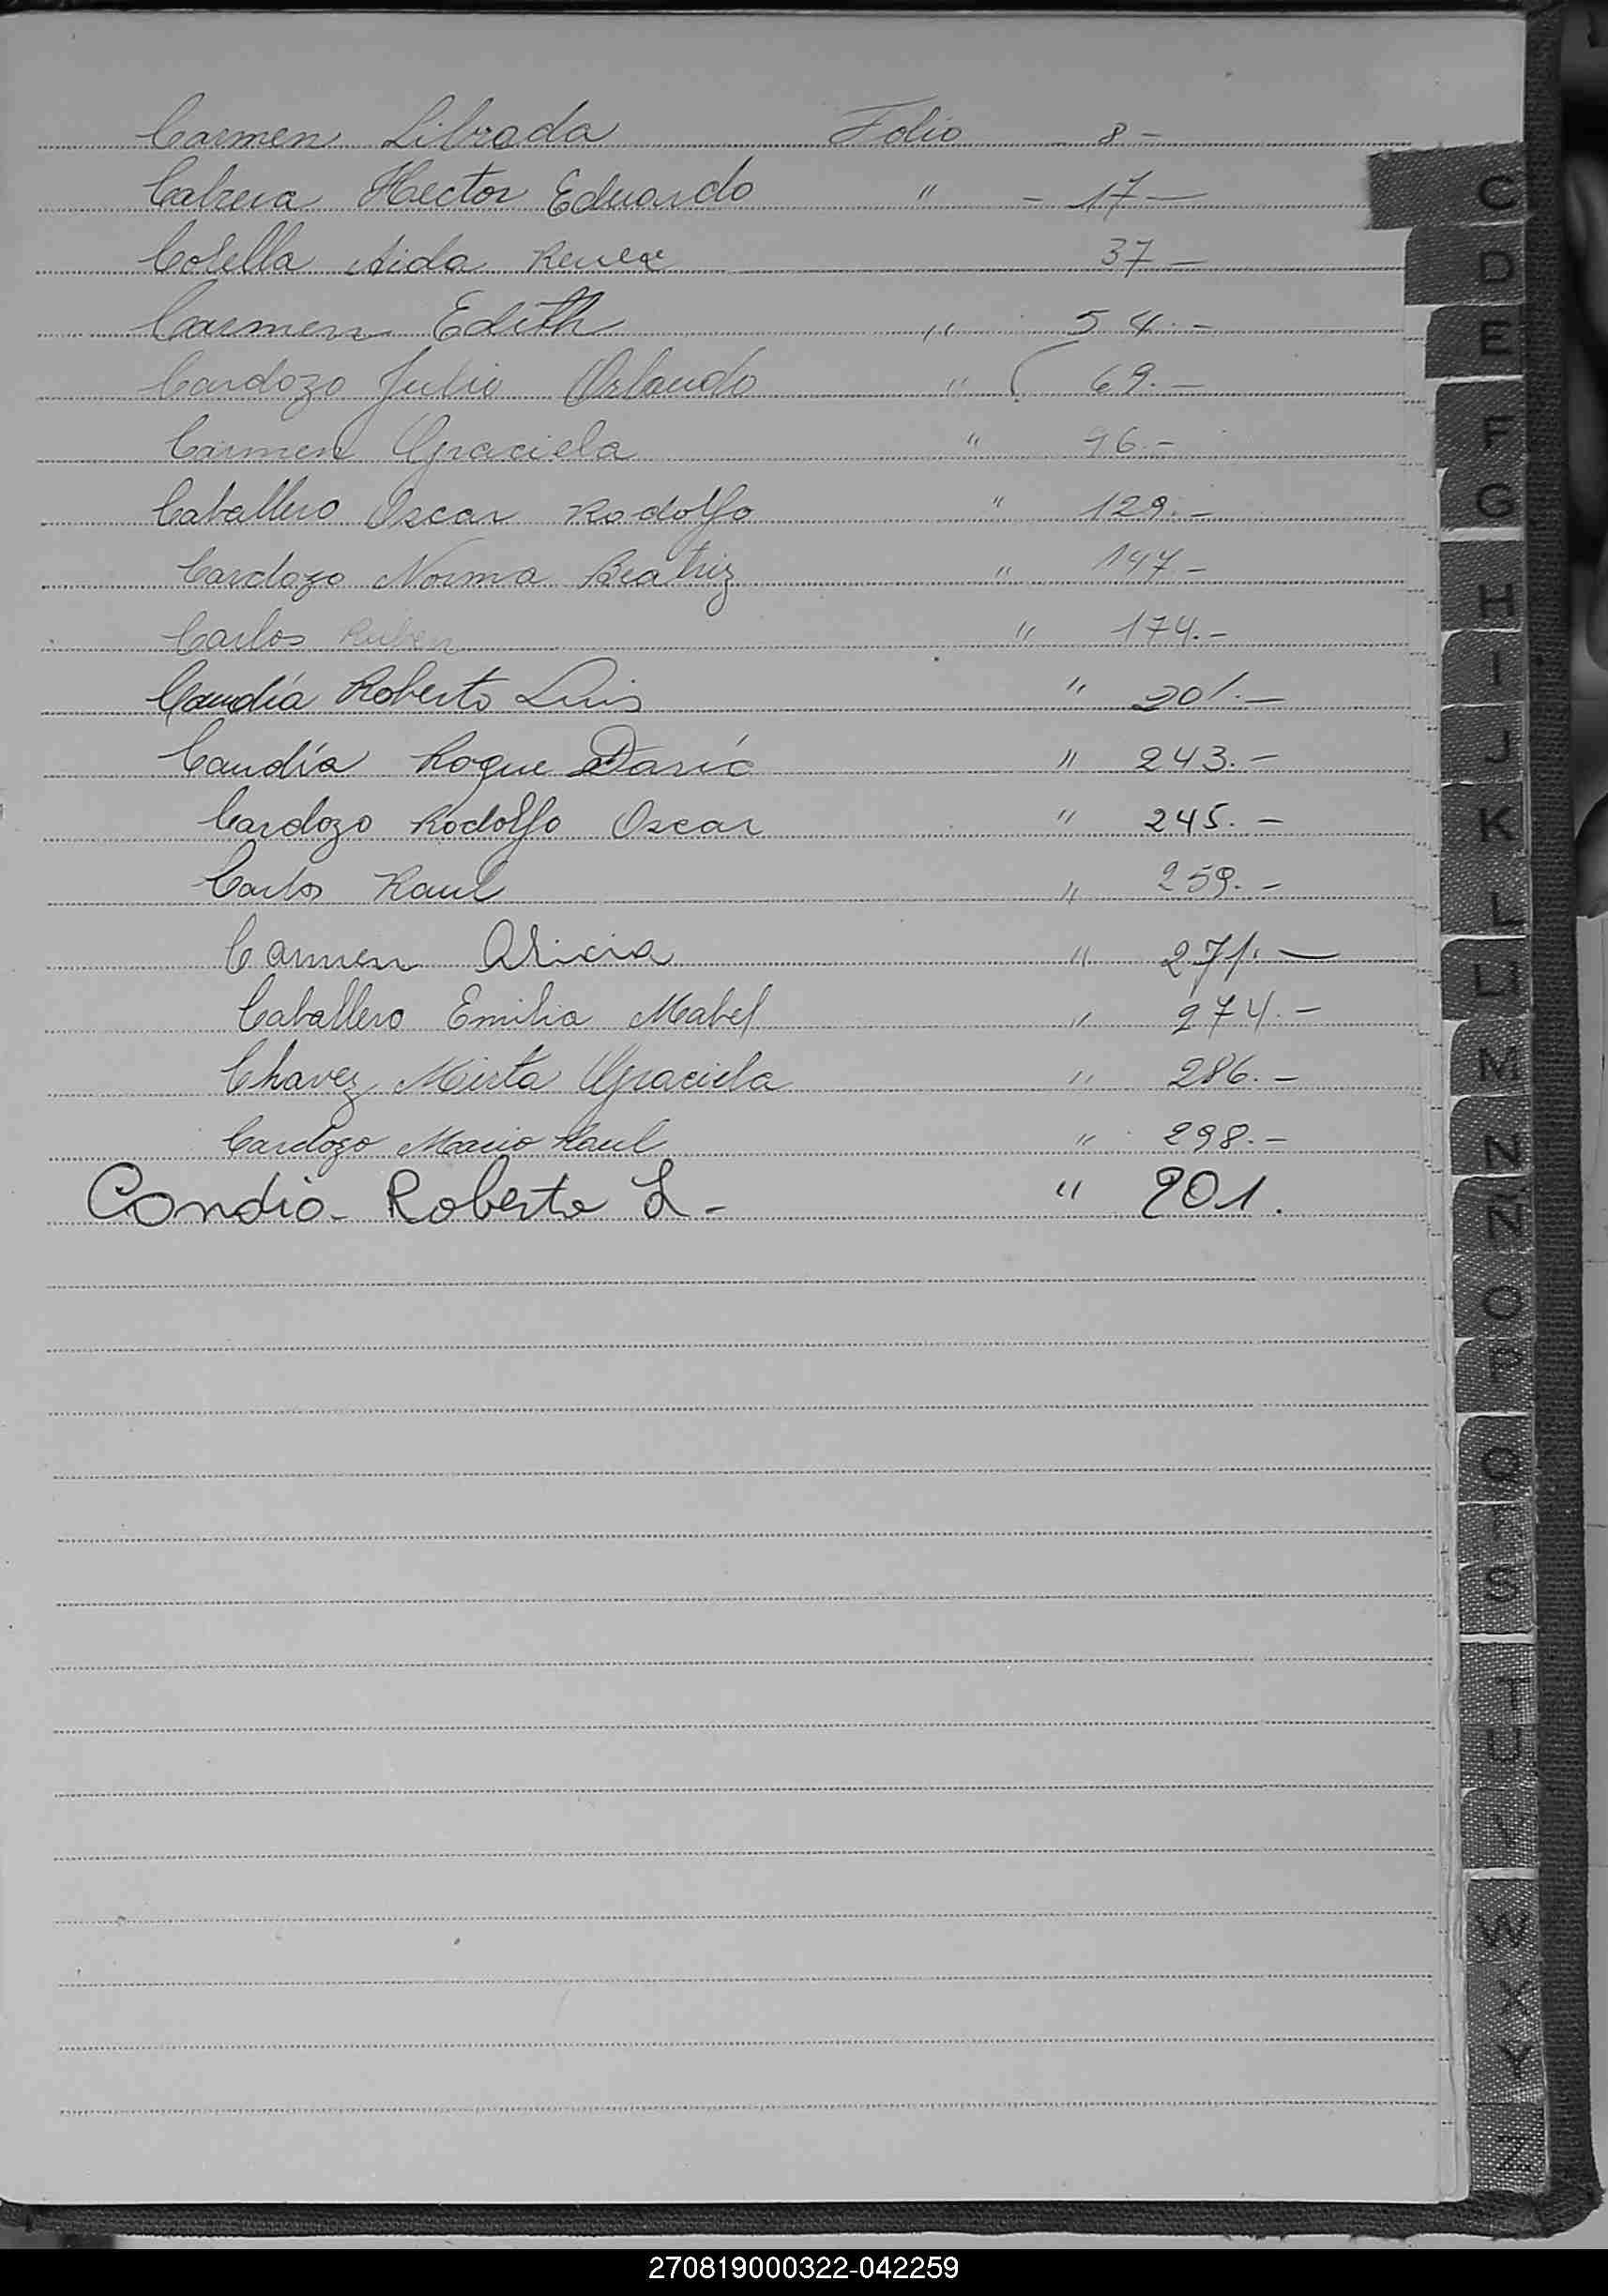 Carmen Librada Folio 8 –
Cabrera Hector Eduardo " – 17 –
Aida 37 –
Carmen Edith " 54.–
Cardozo Julio Orlando " 69.–
Carmen Graciela " 96.–
Caballero Oscar Rodolfo " 129.–
Cardozo Norma Beatriz " 147 –
Carlos Ruben " 174.–
Candía Roberto Luis " 201.–
Candía Roque Darío " 243.–
Cardozo Rodolfo Oscar " 245.–
Carlos Raul " 259.–
Carmen Alicia " 271.–
Caballero Emilia Mabel " 274.–
Chavez Mirta Graciela " 286.–
Cardozo Mario Raul " 298.–
Condia- Roberto L.- " 201.
C
D
E
F
G
H
I
J
K
L
LL
M
N
Ñ
O
P
Q
R
S
T
U
V
W
X
Y
Z
270819000322-042259